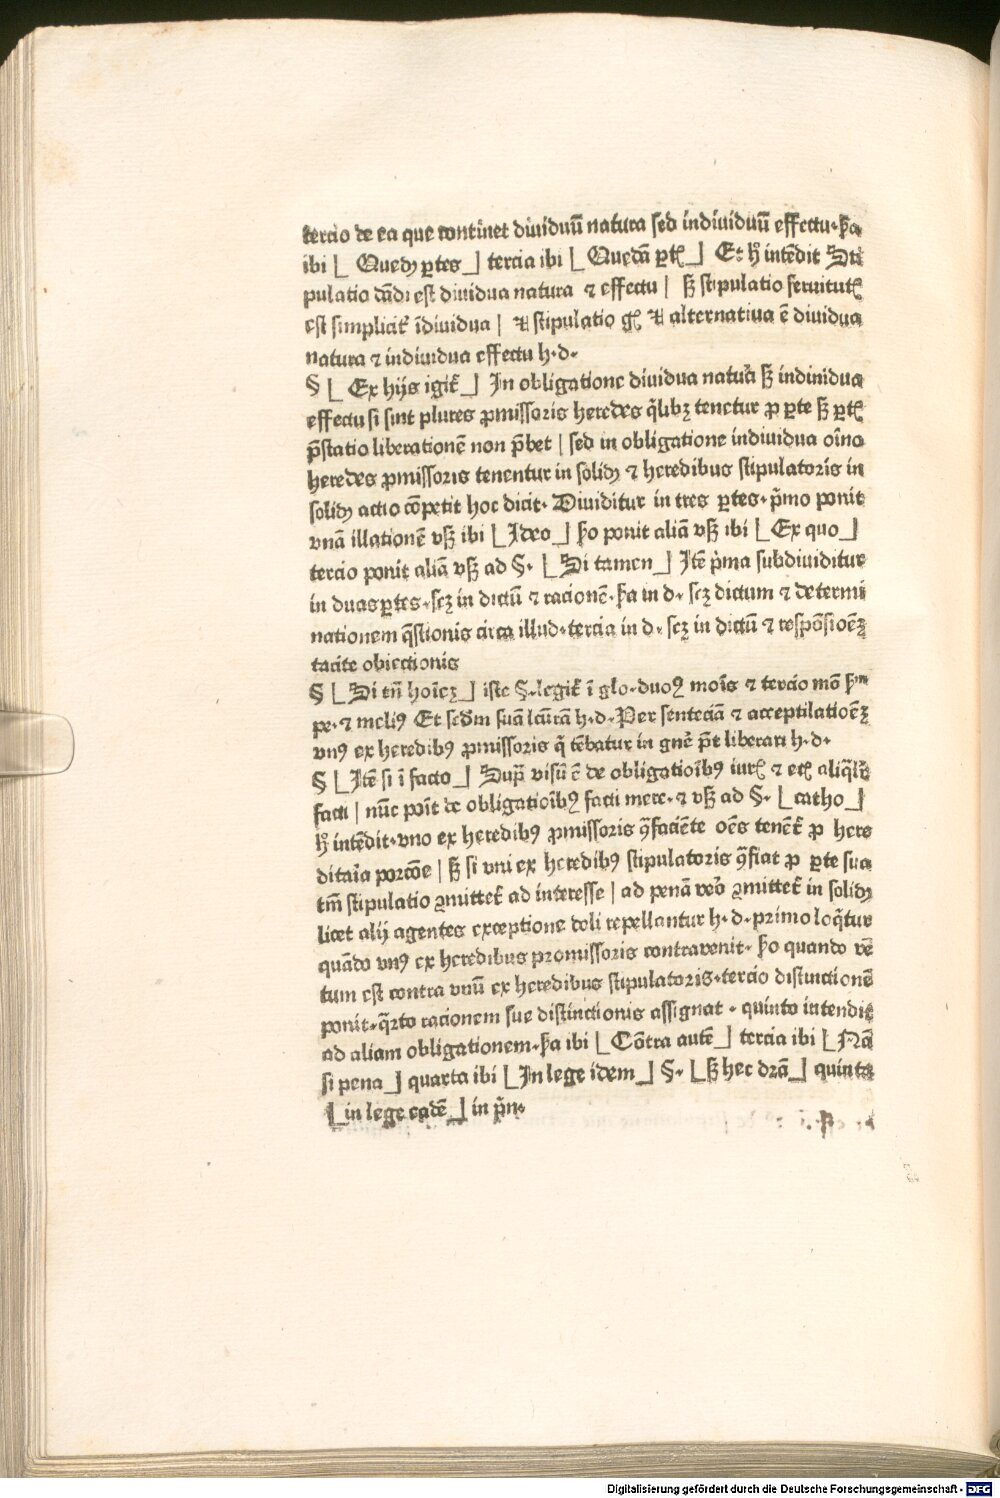 tercio de ea que continet diuiduū natura sed indiuiduū effectu · ẜa
ibi [ Quedꝫ ꝑtes ] tercia ibi [ Quedā ꝑtꝭ ] Et hͦ intēdit Sti
pulatio dādi est diuidua natura ⁊ effectu | sꝫ stipulatio seruitutꝭ
est simplicit̃ īdiuidua | ꝟ stipulatio gꝭ ꝟ alternatiua ē diuidua
natura ⁊ indiuidua effectu h · d ·
§ [ Ex hijs igit̃ ] In obligatione diuidua natur̃a sꝫ indiuidua
effectu si sint plures ꝓmissoris heredes q̄libꝫ tenetur ꝓ ꝑte sꝫ ꝑtꝭ
p̄statio liberationē non p̄bet | sed in obligatione indiuidua oīno
heredes ꝓmissoris tenentur in solidꝫ ⁊ heredibus stipulatoris in
solidꝫ actio cōpetit hoc dicit · Diuiditur in tres ꝑtes · p̄mo ponit
vnā illationē vsꝫ ibi [ Ideo ] ẜo ponit aliā vsꝫ ibi [ Ex quo ]
tercio ponit aliā vsꝫ ad § · [ Si tamen ] Itē p̍ma subdiuiditur
in duas ꝑtes · scꝫ in dictū ⁊ racionē · ẜa in d · scꝫ dictum ⁊ determi
nationem q̄stionis circa illud · tercia in d · scꝫ in dictū ⁊ respōsioēꝫ
tacite obiectionis
§ [ Si tn̄ hoīeꝫ ] iste § · legit̃ ī glo · duoꝰ moīs ⁊ tercio mō ẜm
pe · ⁊ meliꝰ Et scd̄m suā lcūrā h · d · Per sentēciā ⁊ acceptilatioēꝫ
vnꝰ ex heredibꝰ ꝓmissoris q̄ tēbatur in gn̄e p̄t liberari h · d ·
§ [ Itē si ī facto ] Sup̃ visū ē de obligatioībꝰ iurꝭ ⁊ etꝭ aliq̄lr̄
facti | nūc poīt de obligatioībꝰ facti mere · ⁊ vsꝫ ad § · [ catho ]
hͦ intēdit · vno ex heredibꝰ ꝓmissoris ꝯ̄faciēte oēs tenēt̃ ꝓ here
ditar̍ia porcōe | sꝫ si vni ex heredibꝰ stipulatoris ꝯ̄fiat ꝓ ꝑte sua
tm̄ stipulatio ꝯmittet̃ ad interesse | ad penā vero ꝯmittet̃ in solidꝫ
licet alij agentes exceptione doli repellantur h · d · primo loq̄tur
quādo vnꝰ ex heredibus promissoris contrauenit · ẜo quando vē
tum est contra vnū ex heredibus stipulatoris · tercio distinctionē
ponit · q̄rto racionem sue distinctionis assignat · quinto intendit
ad aliam obligationem · ẜa ibi [ Cōtra autē ] tercia ibi [ Nā
si pena ] quarta ibi [ In lege idem ] § · [ sꝫ hec drā ] quinta
[ in lege eadē ] in p̄n ·
Digitalisierung gefördert durch die Deutsche Forschungsgemeinschaft · DFG